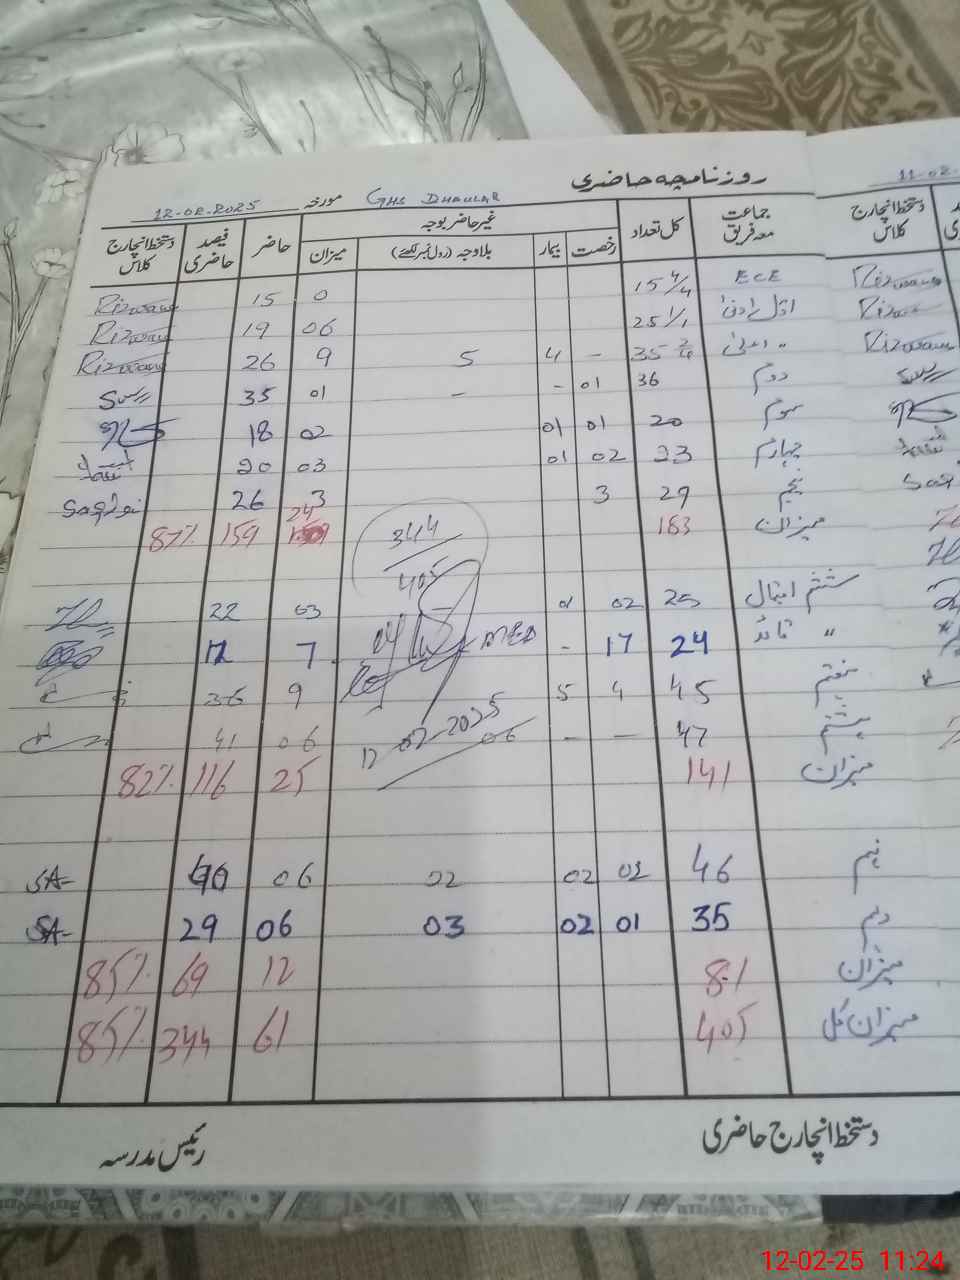 روزنامچہ حاضری GHS DHAULAR مورخہ 12-02-2025
11-02-
جماعت معہ فریق کل تعداد غیر حاضر بوجہ حاضر فیصد حاضری دستخط انچارج کلاس
رخصت بیمار بلاوجہ (رول نمبر لکھئے) میزان
دستخط انچارج کلاس
ECE 15 4/4 0 15 Rizwan
اول ادنیٰ 25 1/1 06 19 Rizwan
〃 اعلیٰ 35 2/4 - 4 5 9 26 Rizwan
دوم 36 01 - - 01 35
سوم 20 01 01 02 18
چہارم 23 02 01 03 20
پنجم 29 3 3 26
میزان 183 24 159 87%
344
405
ششم اقبال 25 02 01 03 22
〃 قائد 24 17 - 7 17
ہفتم 45 4 5 9 36
ہشتم 47 - - 06 06 41
12-02-2025
میزان 141 25 116 82%
نہم 46 02 02 02 06 40 SA
دہم 35 01 02 03 06 29 SA
میزان 81 12 69 85%
میزان کل 405 61 344 85%
دستخط انچارج حاضری رئیس مدرسہ
12-02-25 11:24